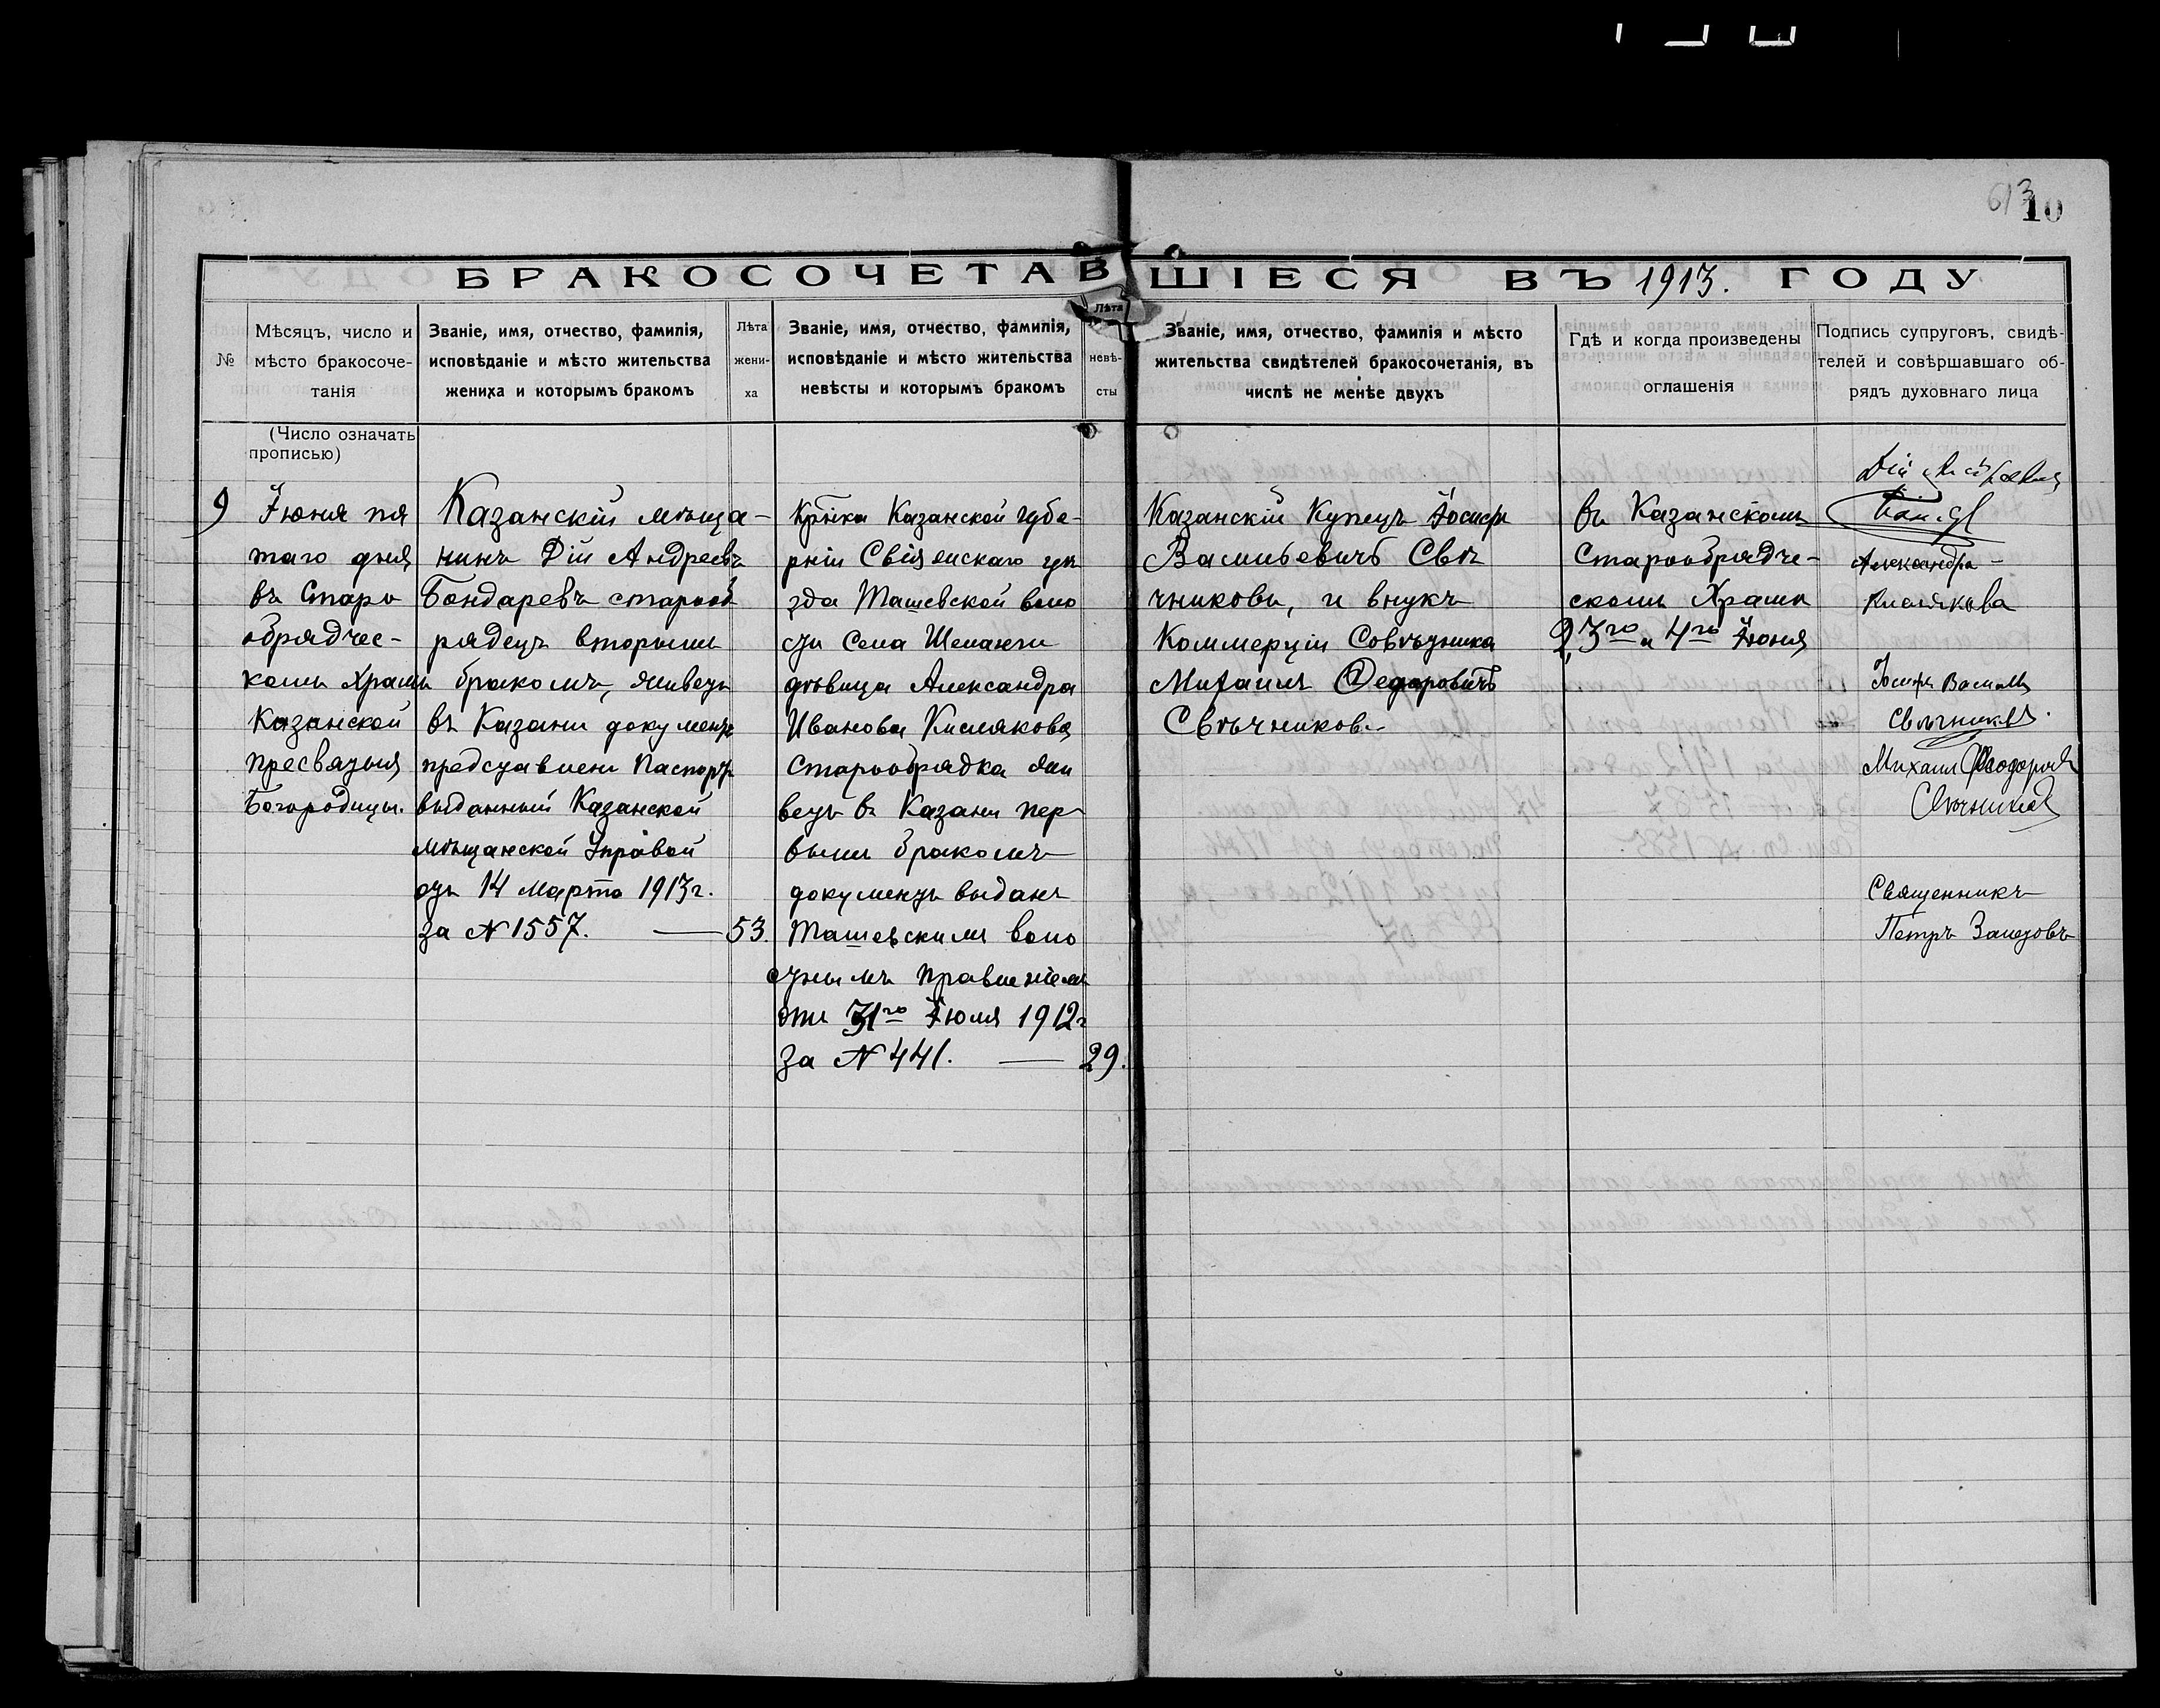 613
10
БРАКОСОЧЕТАВШІЕСЯ ВЪ 1913. ГОДУ
№
Мѣсяцъ, число и
мѣсто бракосоче-
танія
Званіе, имя, отчество, фамилія,
исповѣданіе и мѣсто жительства
жениха и которымъ бракомъ
Лѣта
жени-
ха
Званіе, имя, отчество, фамилія,
исповѣданіе и мѣсто жительства
невѣсты и которымъ бракомъ
Лѣта
невѣ-
сты
Званіе, имя, отчество, фамилія и мѣсто
жительства свидѣтелей бракосочетанія, въ
числѣ не менѣе двухъ
Гдѣ и когда произведены
оглашенія
Подпись супруговъ, свидѣ-
телей и совѣршавшаго об-
рядъ духовнаго лица
(Число означать
прописью)
9
Іюня пя
таго дня
въ Старо
обрядчес-
комъ Храмѣ
Казанской
Пресвятыя
Богородицы.
Казанскій мѣща-
нинъ Дій Андреевъ
Бондаревъ старооб
рядецъ вторымъ
бракомъ, живетъ
въ Казани документъ
представленъ Паспортъ
выданный Казанской
мѣщанской Управой
отъ 14 Марта 1913г.
за № 1557.
53.
Крѣнка Казанской губе-
рніи Свіяжскаго уѣ
зда Ташевской воло
сти Села Шеланги
дѣвица Александра
Иванова Кислякова
Старообрядка жи
ветъ въ Казани пер
вымъ бракомъ
документъ выданъ
Ташевскимъ воло
стнымъ правленіемъ
отъ 31го Іюля 1912г
за № 441.
29.
Казанскій Купецъ Іосифъ
Васильевичъ Свѣ
чниковъ, и внукъ
Коммерціи Совѣтника
Михаилъ Федоровичъ
Свѣчниковъ
въ Казанскомъ
Старообрядче-
скомъ Храмѣ
2, 3го и 4го Іюня
Дій
Александра
Кислякова
Іосифъ Васильев
Свѣчниковъ.
Михаилъ Феодоров
Свѣчников
Священникъ
Петръ Залетовъ